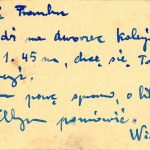 Franku
dź na dworzec kolej
1. 45 m, chcę się To
parę spraw, o kt
pomówić.
Wi